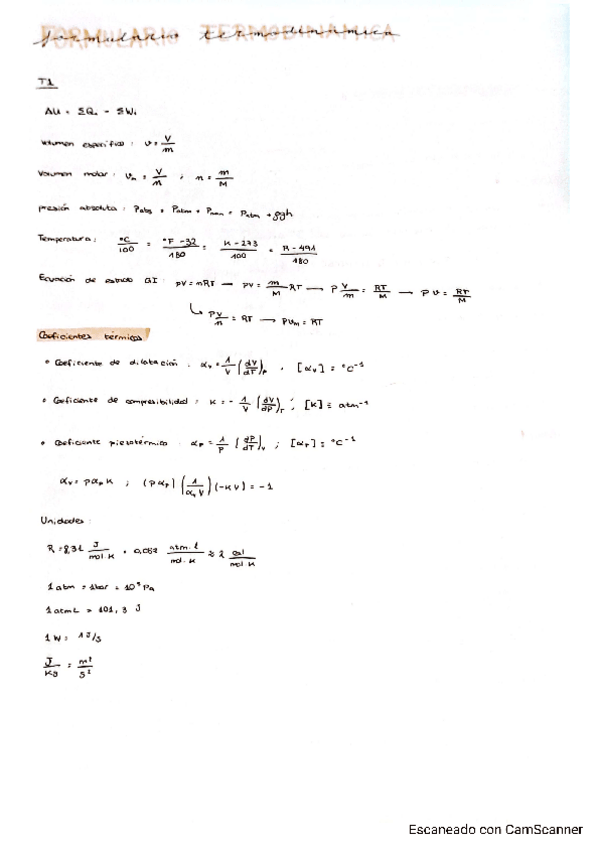 FORMULARIO TERMODINÁMICA
formulario termodinámica
T1
ΔU = ΣQi - ΣWi
Volumen específico : v = V/m
Volumen molar : Vm = V/n ; n = m/M
presión absoluta : Pabs = Patm + Pman = Patm + ρgh
Temperatura : °C/100 = °F-32/180 = K-273/100 = R-491/180
Ecuación de estado GI : PV = nRT → PV = m/M RT → P V/m = RT/M → Pv = RT/M
↳ PV/n = RT → PVm = RT
Coeficientes térmicos
• Coeficiente de dilatación : αv = 1/V (dV/dT)p , [αv] = °C⁻¹
• Coeficiente de compresibilidad : K = - 1/V (dV/dP)T ; [K] = atm⁻¹
• Coeficiente piezotérmico : αp = 1/P (dP/dT)v ; [αp] = °C⁻¹
αv = P αp K ; (P αp) (1/αv V) (-K V) = -1
Unidades :
R = 8,31 J/mol·K = 0,082 atm·l/mol·K ≈ 2 cal/mol·K
1 atm = 1 bar = 10⁵ Pa
1 atmL = 101,3 J
1 W = 1 J/s
J/Kg = m²/s²
Escaneado con CamScanner